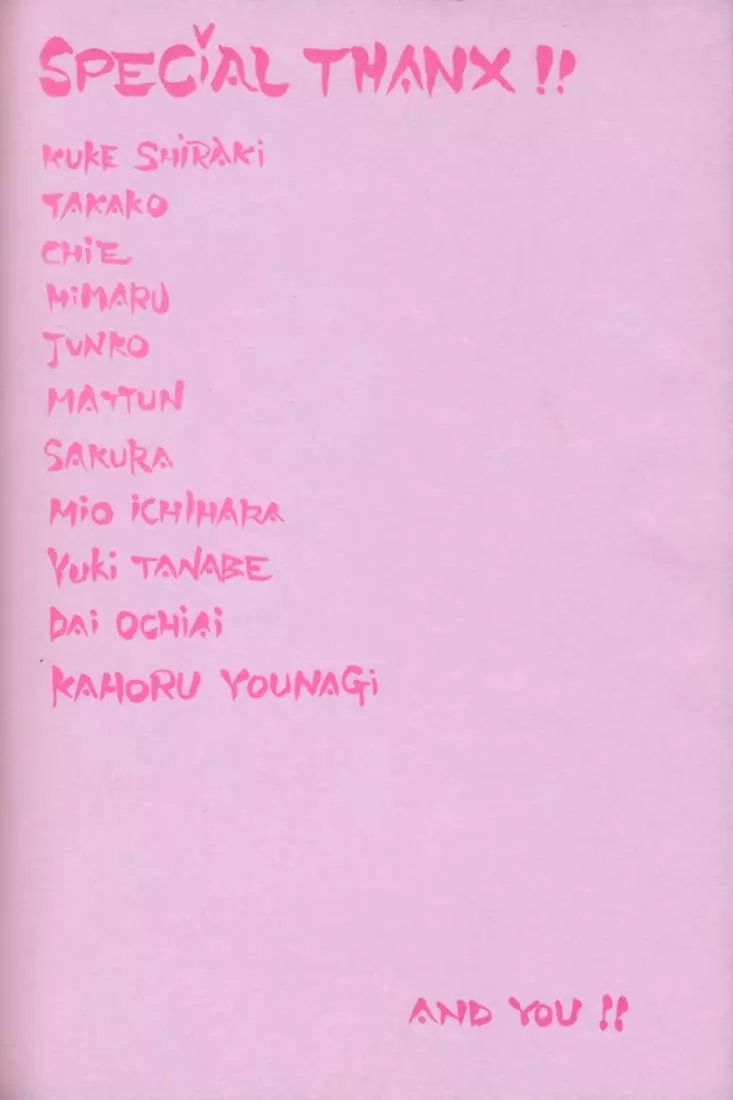 SPECiAL THANX !!
KUKE SHiRAKi
TAKAKO
CHiE
HiMARU
JUNKO
MATTUN
SAKURA
MiO iCHIHARA
YUKi TANABE
DAi OCHiAi
KAHORU YOUNAGi
AND YOU !!